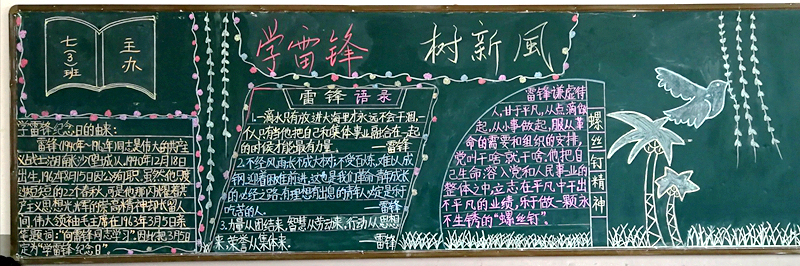 七③班
主办
学雷锋 树新風
学雷锋纪念日的由来:
雷锋1940年-1962年同志是伟大的共产
义战士湖南长沙望城人,1940年12月18日
出生,1962年8月15日因公殉职,虽然他只度
过短短的22个春秋,可是他那闪耀着共
产主义思想光辉的崇高精神却长留人
间,伟大领袖毛主席在1963年3月5日亲
笔题词:"向雷锋同志学习".因此把3月5日
定为"学雷锋纪念日".
雷锋语录
1.一滴水只有放进大海里才永远不会干涸,一
个人只有当他把自己和集体事业融合在一起
的时候才能最有力量. ——雷锋
2.不经风雨,长不成大树,不受百炼,难以成
钢,迎着困难前进,这也是我们革命青年成长
的必经之路,有理想有出息的青年人必定是乐于
吃苦的人. ——雷锋
3.力量从团结来,智慧从劳动来,行动从思想
来,荣誉从集体来. ——雷锋
雷锋谦虚待
人,甘于平凡,从点滴做
起,从小事做起,服从革
命的需要和组织的安排,
党叫干啥就干啥,他把自
己生命溶入党和人民事业的
整体之中,立志在平凡中干出
不平凡的业绩,乐于做一颗永
不生锈的"螺丝钉"
螺丝钉精神